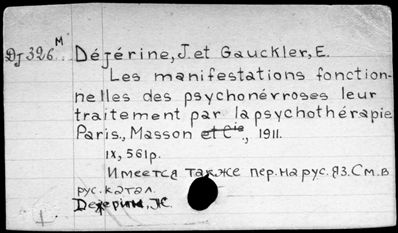 Dj 326 M Déjérine, J. et Gauckler, E.
Les manifestations fonction-
nelles des psychonévroses leur
traitement par la psychothérapie
Paris, Masson et Cie., 1911.
IX, 561p.
Имеется также пер. на рус. яз. См. в
рус. катал.
Дежерин, Ж.